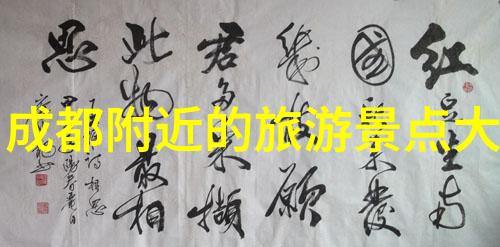 成都附近的旅游景点大
红豆生南
國春来發
幾枝願
君多采擷
此物最相
思